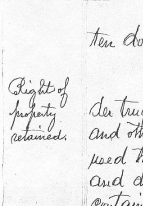 ten do
Right of
property
retained.
der tru
and oth
used th
and d